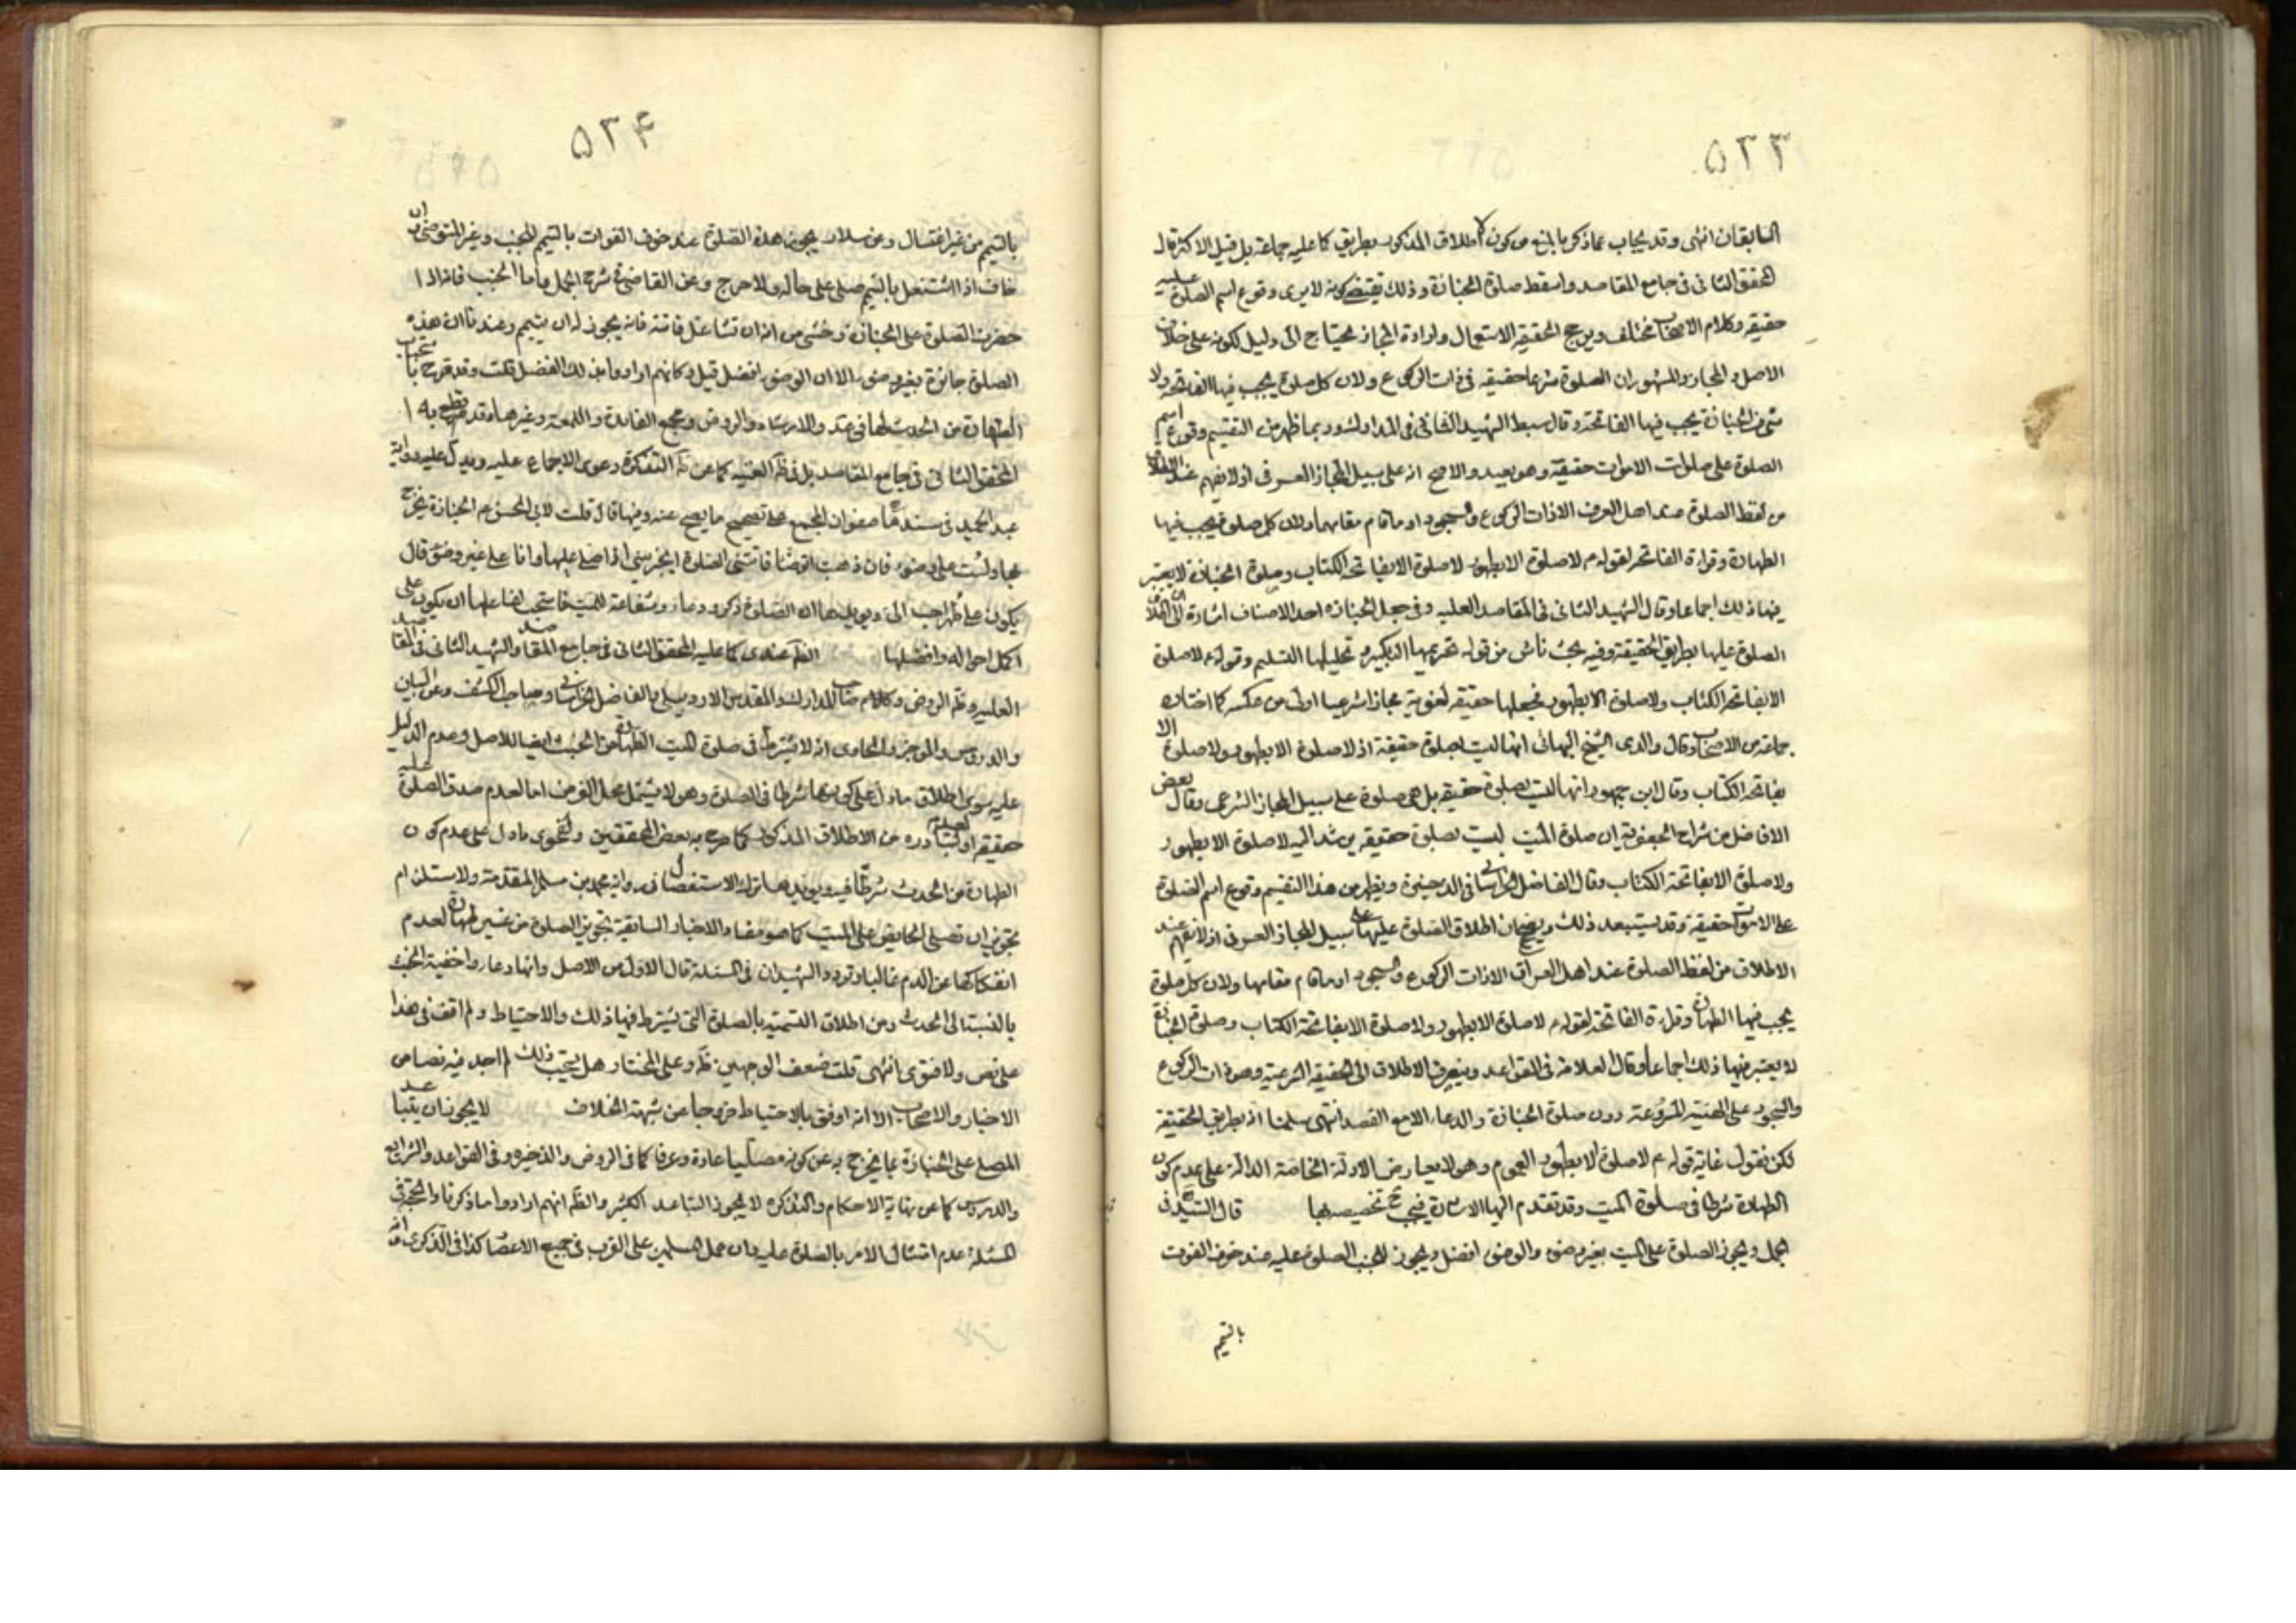 ۵۳۳
السابقان انتهى وقد يجاب عما ذكر بالمنع من كون الاطلاق المذكور بطريق كما عليه جماعة بل قيل الاكثر قال
المحقق الثانى فى جامع المقاصد واسقط صلوة الجنازة وذلك يقتضى كونه لا يرى وقوع اسم الصلوة عليه
حقيقة وكلام الاصحاب مختلف ويرجح الحقيقة الاستعمال وارادة المجاز محتاج الى دليل لكونه على خلاف
الاصل والمجاز والمشهور ان الصلوة شرعا حقيقة فى ذات الركوع ولان كل صلوة يجب فيها الفاتحة ولا
شئ من الجنازة يجب فيها الفاتحة وقال سبط الشهيد الثانى فى المدارك وربما ظهر من التقسيم وقوع اسم
الصلوة على صلوات الاموات حقيقة وهو بعيد والاصح انه على سبيل المجاز العرفى اذ لا يفهم عند الاطلاق
من لفظ الصلوة عند اهل العرف الا ذات الركوع والسجود او ما قام مقامهما ولان كل صلوة يجب فيها
الطهارة وقراءة الفاتحة لقوله ع لا صلوة الا بطهور لا صلوة الا بفاتحة الكتاب وصلوة الجنازة لا يعتبر
فيها ذلك اجماعا وقال الشهيد الثانى فى المقاصد العلية وفى جعل الجنازة احد الاصناف اشارة الى ان اطلاق
الصلوة عليها بطريق الحقيقة وفيه بحث ناش من قوله تحريمها التكبير و تحليلها التسليم وقوله ع لا صلوة
الا بفاتحة الكتاب ولا صلوة الا بطهور فجعلها حقيقة لغوية مجازا شرعيا اولى من عكسه كما اختاره
جماعة من الاصحاب وقال والدى الشيخ البهائى انها ليست بصلوة حقيقة اذ لا صلوة الا بطهور ولا صلوة الا
بفاتحة الكتاب وقال ابن جمهور انها ليست بصلوة حقيقة بل هى صلوة على سبيل المجاز الشرعى وقال بعض
الافاضل من شراح الجعفرية ان صلوة الميت ليست بصلوة حقيقة يرشد اليه لا صلوة الا بطهور
ولا صلوة الا بفاتحة الكتاب وقال الفاضل الخراسانى فى الذخيرة ويظهر من هذا التقسيم وقوع اسم الصلوة
على الاموات حقيقة وقد يستبعد ذلك ويصحح ان اطلاق الصلوة عليها على سبيل المجاز العرفى اذ لا يفهم عند
الاطلاق من لفظ الصلوة عند اهل العراق الا ذات الركوع والسجود او ما قام مقامها ولان كل صلوة
يجب فيها الطهارة وقراءة الفاتحة لقوله ع لا صلوة الا بطهور ولا صلوة الا بفاتحة الكتاب وصلوة الجنازة
لا يعتبر فيها ذلك اجماعا وقال العلامة فى القواعد وينصرف الاطلاق الى الحقيقة الشرعية وهو ذات الركوع
والسجود على الهيئة المشروعة دون صلوة الجنازة والدعاء الا مع القصد انتهى سلمنا انه بطريق الحقيقة
لكن نقول غاية قوله ع لا صلوة الا بطهور العموم وهو لا يعارض الادلة الخاصة الدالة على عدم كون
الطهارة شرطا فى صلوة الميت وقد تقدم اليها الاشارة فيجب ح تخصيصه بها قال السيد فى
الجمل ويجوز الصلوة على الميت بغير وضوء والوضوء افضل ويجوز للجنب الصلوة عليه عند خوف الفوت
بالتيمم
۵۳۴
بالتيمم من غير اغتسال وعن سلار يجوز هذه الصلوة عند خوف الفوات بالتيمم للجنب وغير المتوضى ان
خاف اذا اشتغل بالتيمم صلى على حاله ولا حرج وعن القاضى فى شرح الجمل واما الجنب فانه اذا
حضرت الصلوة على الجنازة وخشى من انه ان تشاغل فاتته فانه يجوز له ان يتيمم وعندنا ان هذه
الصلوة جائزة بغير وضوء الا ان الوضوء افضل قيل وكانهم ارادوا بذلك الفضل قلت وقد صرح باستحباب
الطهارة من الحدث لها فى عد والارشاد والروض ومجمع الفائدة واللمعة وغيرها وقد قطع به
المحقق الثانى فى جامع المقاصد بل فى ظ الغنية كما عن ظ التذكرة دعوى الاجماع عليه ويدل عليه رواية
عبد الحميد فى سندها صفوان المجمع على تصحيح ما يصح عنه وفيها قال قلت لابى الحسن ع الجنازة يخرج
بها ولست على وضوء فان ذهبت اتوضأ فاتتنى الصلوة ايجزينى ان اصلى عليها وانا على غير وضوء قال
يكون على طهر احب الى ويؤيدها ان الصلوة ذكر ودعاء وشفاعة للميت فاستحب لفاعلها ان يكون على
اكمل احواله وافضلها الظ عندى كما عليه المحقق الثانى فى جامع المقاصد والشهيد الثانى فى المقاصد
العلية وظ الروض وكلام صاحب المدارك والمقدس الاردبيلى والفاضل الخراسانى وصاحب الكشف وعن البيان
والدروس والموجز والحاوى انه لا يشترط فى صلوة الميت الطهارة من الخبث ايضا للاصل وعدم الدليل
عليه سوى اطلاق ما دل على كونها شرطا فى الصلوة وهو لا يشمل محل الفرض اما لعدم صدق الصلوة عليه
حقيقة او لعدم تبادره من الاطلاق المذكور كما صرح به بعض المحققين ولفحوى ما دل على عدم كون
الطهارة من الحدث شرطا فيه ويؤيدها ترك الاستفصال فى رواية محمد بن مسلم المتقدمة ولاستلزام
تجويز ان تصلى الحائض على الميت كما هو مفاد الاخبار السابقة تجويز الصلوة من غير طهارة لعدم
انفكاكها عن الدم غالبا وتردد الشهيدان فى المسئلة قال الاول من الاصل وانها دعاء واخفية الخبث
بالنسبة الى الحدث ومن اطلاق التسمية بالصلوة التى يشترط فيها ذلك والاحتياط ولم اقف فى هذا
على نص ولا فتوى انتهى قلت ضعف الوجهين ظ وعلى المختار هل يستحب ذلك لم اجد فيه نصا من
الاخبار والاصحاب الا انه اوفق بالاحتياط خروجا عن شبهة الخلاف لا يجوز ان يتباعد
المصلى على الجنازة بما يخرج به عن كونه مصليا عادة وعرفا كما فى الروض والذخيرة وفى القواعد والشرايع
والدروس كما عن نهاية الاحكام والتذكرة لا يجوز التباعد الكثير والظ انهم ارادوا ما ذكرنا والحجة فى
المسئلة عدم امتثال الامر بالصلوة عليه وان عمل المسلمين على القرب فى جميع الاعصار كذا فى الذكرى